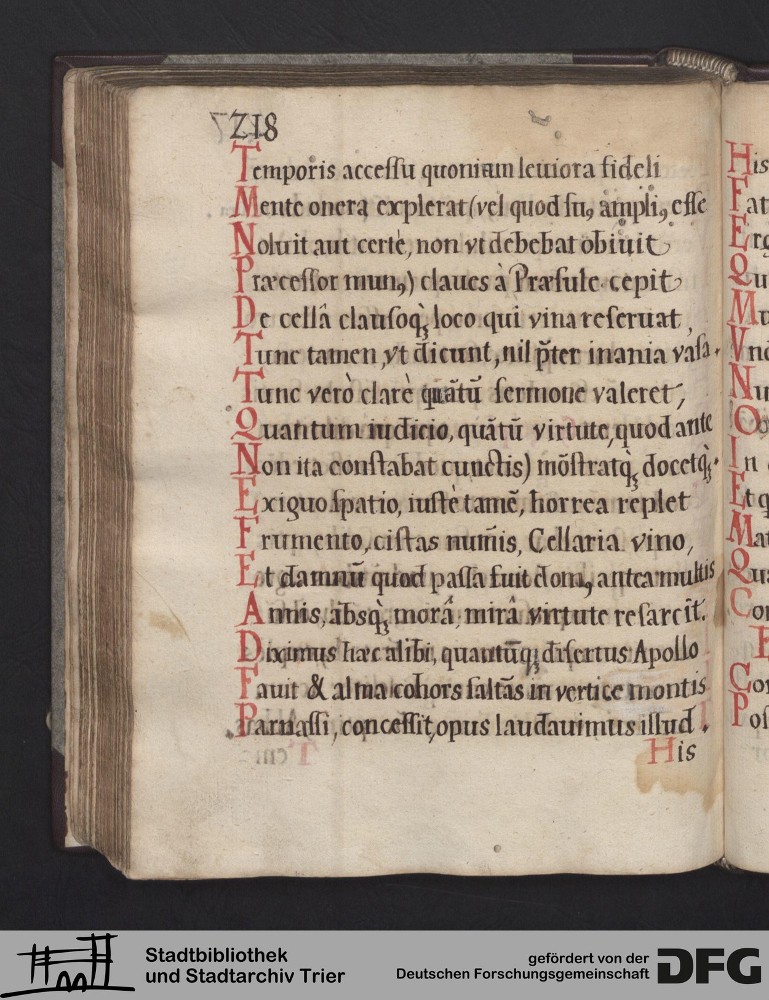 218
Temporis accessu quoniam leuiora fideli
Mente onera explerat (vel quod suꝯ ampliꝯ esse
Noluit aut certè, non vt debebat obiuit
Præcessor munꝯ) claues à Præsule cepit
De cellâ clausoq̀ꝫ loco qui vina reseruat,
Tunc tamen, vt dicunt, nil p̃ter inania vasa.
Tunc verò clarè quātū sermone valeret,
Quantum iudicio, quātū virtute, quod ante
Non ita constabat cunctis) mōstratq̀ꝫ docetq̀ꝫ.
Exiguo spatio, iustè tamē, horrea replet
Frumento, cistas num̄is, Cellaria vino,
Et damnū quod passa fuit domꝯ antea multis
Annis, absq̀ꝫ morâ, mirâ virtute resarcit.
Diximus hæc alibi, quantūq̀ꝫ disertus Apollo
Fauit & alma cohors saltās in vertice montis
Parnassi, concessit, opus laudauimus illud.
His
His
Fat
Erg
Qu
Mu
Vnd
Nu
In
Et q
Mat
Qua
Con
Con
Pos
Stadtbibliothek
und Stadtarchiv Trier
gefördert von der
Deutschen Forschungsgemeinschaft
DFG